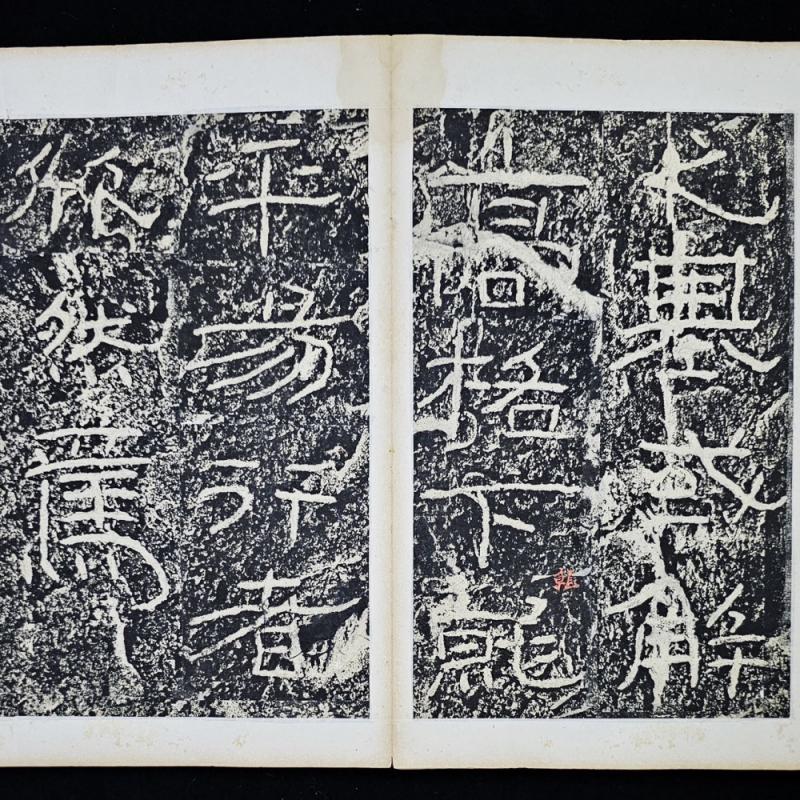 之基或解
高格下就
平易行者
欣然焉